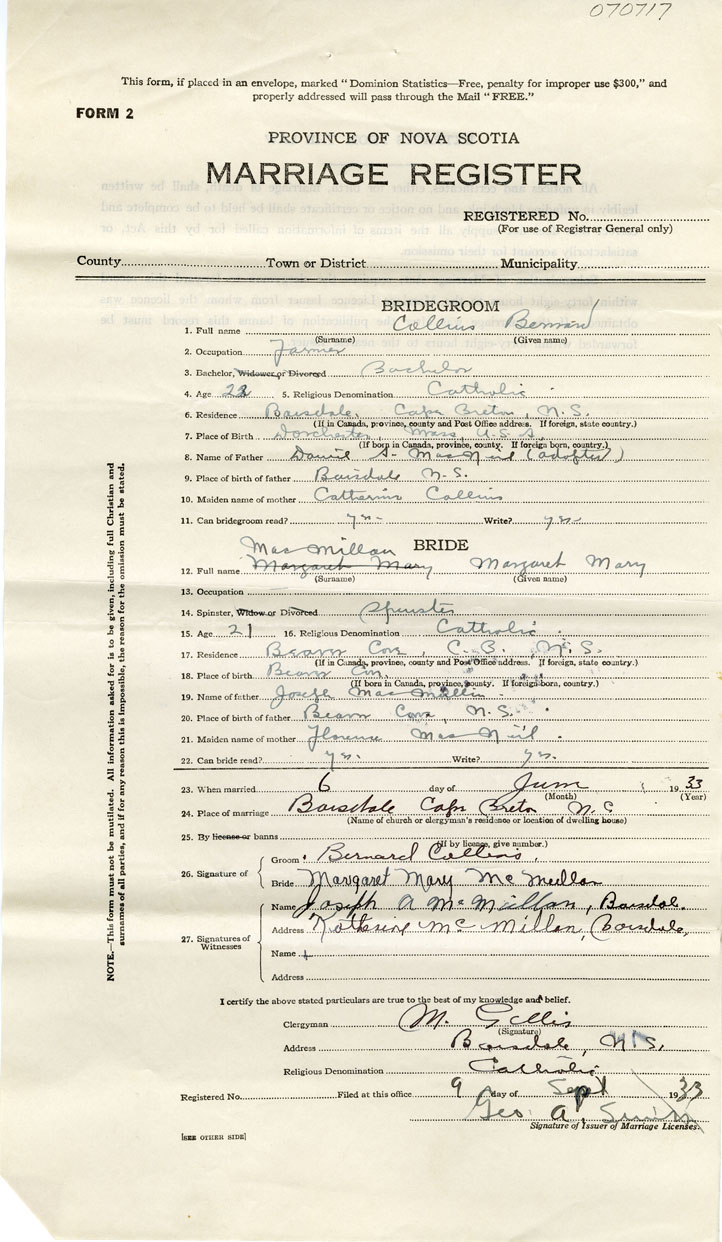 070717
This form, if placed in an envelope, marked " Dominion Statistics—Free, penalty for improper use $300," and
properly addressed will pass through the Mail " FREE."
FORM 2
PROVINCE OF NOVA SCOTIA
MARRIAGE REGISTER
REGISTERED No.
(For use of Registrar General only)
County Town or District Municipality
BRIDEGROOM
1. Full name Collins Bernard
(Surname) (Given name)
2. Occupation Farmer
3. Bachelor, Widower or Divorced Bachelor
4. Age 23 5. Religious Denomination Catholic
6. Residence Boisdale, Cape Breton, N.S.
(If in Canada, province, county and Post Office address. If foreign, state country.)
7. Place of Birth Dorchester, Mass, U.S.A
(If born in Canada, province, county. If foreign born, country.)
8. Name of Father Daniel S. MacNeil (adopted)
9. Place of birth of father Boisdale N.S.
10. Maiden name of mother Catherine Collins
11. Can bridegroom read? yes Write? yes
BRIDE
MacMillan
12. Full name Margaret Mary Margaret Mary
(Surname) (Given name)
13. Occupation
14. Spinster, Widow or Divorced Spinster
15. Age 21 16. Religious Denomination Catholic
17. Residence Beaver Cove, C.B., N.S.
(If in Canada, province, county and Post Office address. If foreign, state country.)
18. Place of birth Beaver Cove
(If born in Canada, province, county. If foreign born, country.)
19. Name of father Joseph MacMillan
20. Place of birth of father Beaver Cove, N.S.
21. Maiden name of mother Florence MacNeil
22. Can bride read? yes. Write? yes.
23. When married 6 day of June 1933
(Month) (Year)
24. Place of marriage Boisdale Cape Breton N.S
(Name of church or clergyman's residence or location of dwelling house)
25. By license or banns
(If by license, give number.)
26. Signature of
Groom Bernard Collins
Bride Margaret Mary McMillan
27. Signatures of Witnesses
Name Joseph A McMillan, Boisdale.
Address Katherine McMillan, Boisdale,
Name
Address
I certify the above stated particulars are true to the best of my knowledge and belief.
Clergyman M. Gillis
(Signature)
Address Boisdale, N.S.
Religious Denomination Catholic
Registered No. Filed at this office 9 day of Sept 1933
Geo. A. Smith
Signature of Issuer of Marriage Licenses.
[SEE OTHER SIDE]
NOTE.—This form must not be mutilated. All information asked for is to be given, including full Christian and
surnames of all parties, and if for any reason this is impossible, the reason for the omission must be stated.